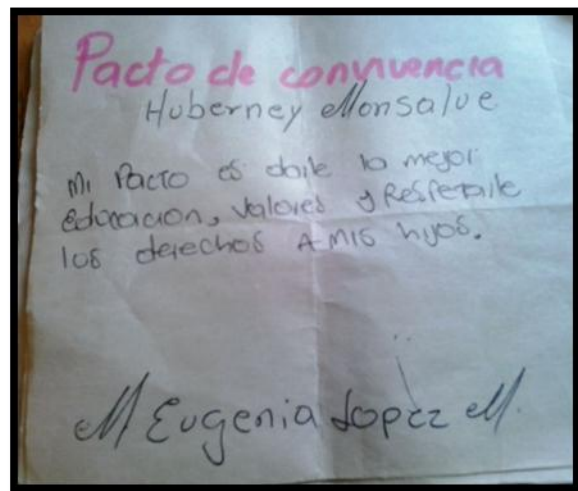 Pacto de convivencia
Huberney Monsalve
Mi Pacto es darle la mejor
educacion, valores y Respetarle
los derechos A mis hijos.
M Eugenia Lopez M.